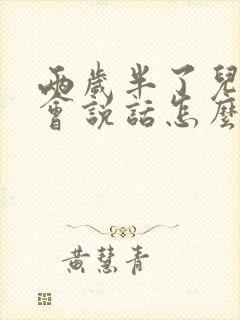 兩歲半了兒
會說話怎麼
黃慧青